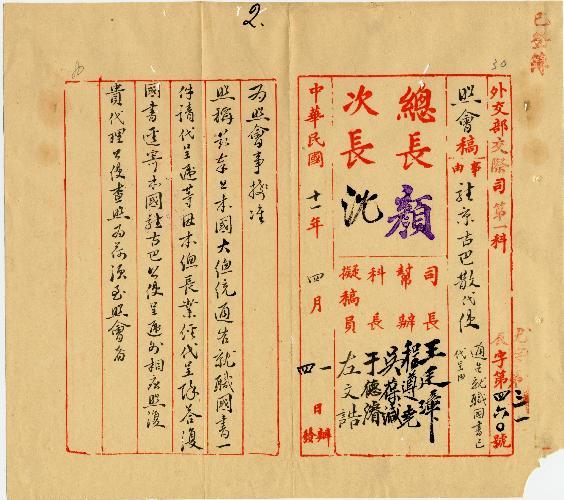 2.
30
已登簿
外交部交際司第一科
辰字第四六〇號
照會稿
事由
駐京古巴散代使
通告就職國書已代呈由
總長顏
次長沈
司長 王廷璋
幫辦 程遵堯
吳葆諴
科長 于德濬
擬稿員 左文誥
中華民國十一年四月
一日辦
四日發
為照會事接准
照稱茲奉上本國大總統通告就職國書一
件請代呈遞等因本總長業經代呈除答復
國書逕寄本國駐古巴公使呈遞外相應照復
貴代理公使查照為荷須至照會者